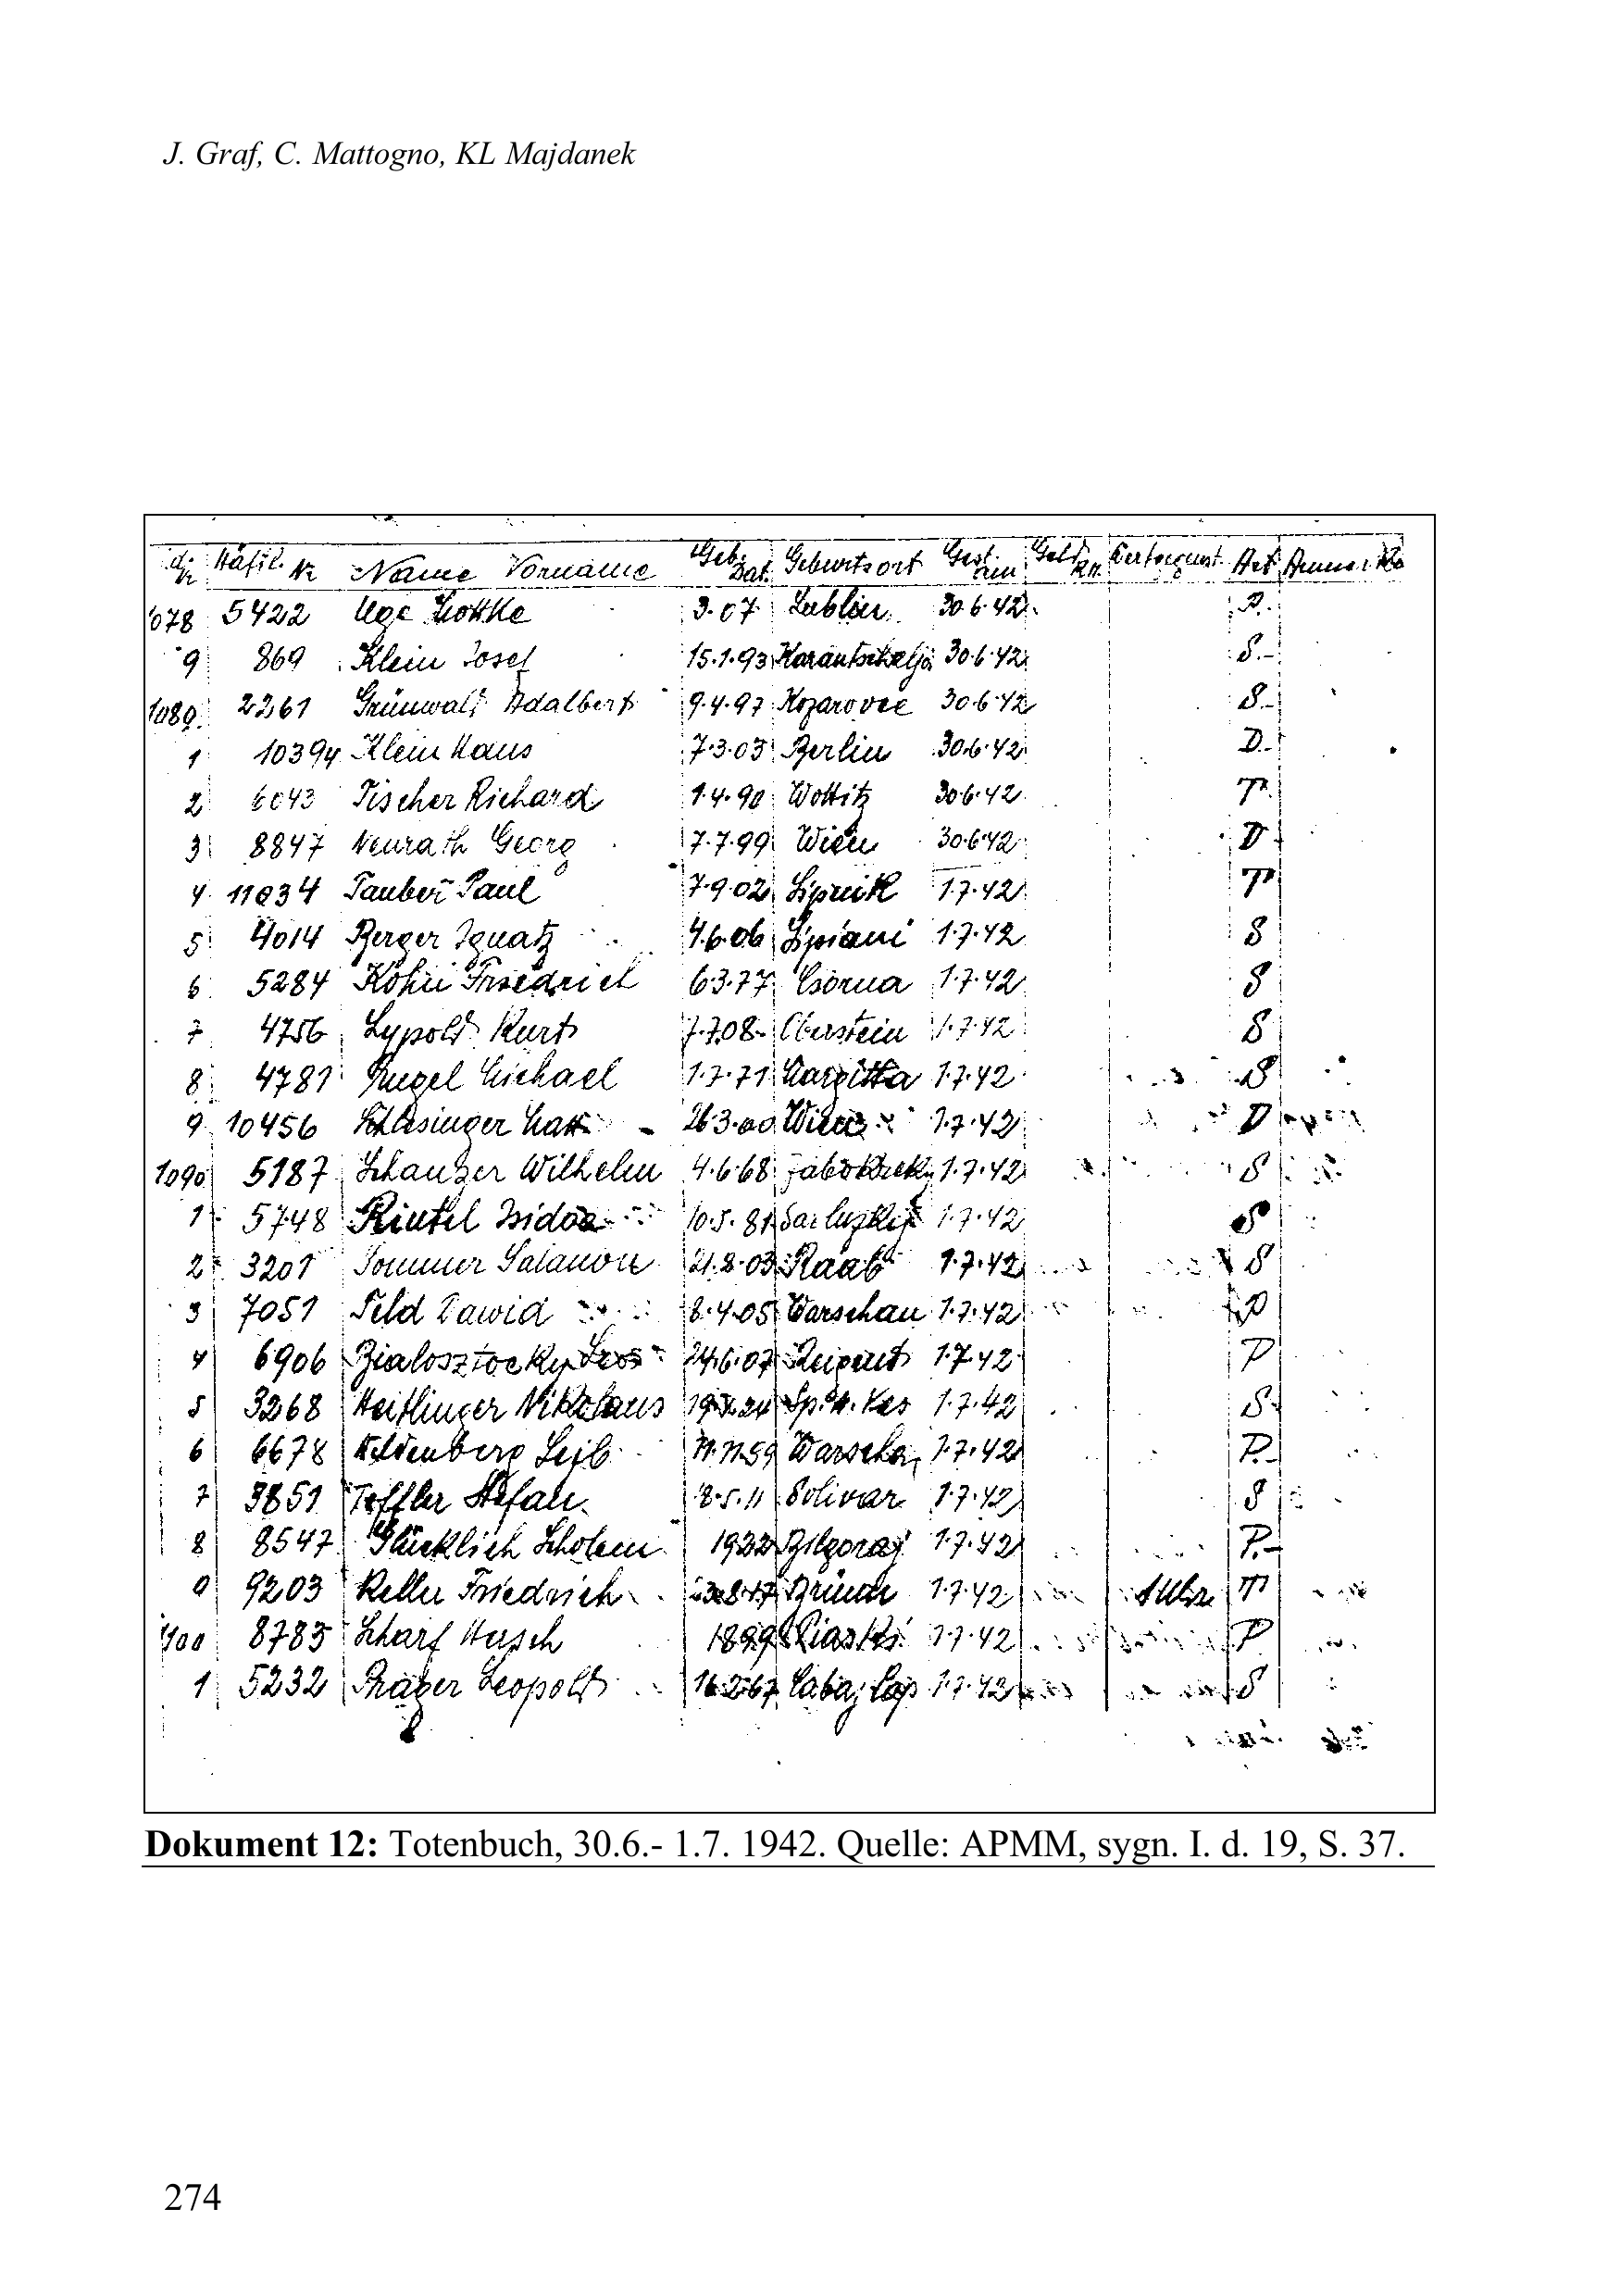 J. Graf, C. Mattogno, KL Majdanek
Häftl. Nr Name Vorname Geb. Dat. Geburtsort Gest. am Art
1078 5422 3.07 Lublin 30.6.42 P.
9 869 Klein Josef 15.1.93 30.6.42 S.-
1080 2261 Grünwald Adalbert 9.4.97 Kozarovce 30.6.42 S.-
1 10394 Klein Hans 7.3.03 Berlin 30.6.42 D.-
2 6043 Fischer Richard 1.4.90 Wottitz 30.6.42 T
3 8847 Neurath Georg 7.7.99 Wien 30.6.42 D
4 11034 Tauber Paul 7.9.02 Lipnik 1.7.42 T
5 4014 Berger Ignatz 4.6.06 Lipiani 1.7.42 S
6 5284 Kohn Friedrich 6.3.77 Csorna 1.7.42 S
7 4756 Lypold Kurt 7.7.08 Oberstein 1.7.42 S
8 4781 Michael 1.7.71 Margitta 1.7.42 S
9 10456 Schlesinger Max 26.3.00 Wien 1.7.42 D
1090 5187 Schanzer Wilhelm 4.6.68 1.7.42 S
1 5748 Rintel Isidor 10.5.81 1.7.42 S
2 3201 Sommer Salamon 21.8.03 Raab 1.7.42 S
3 7051 Feld Dawid 8.4.05 Warschau 1.7.42 P
4 6906 Bialosztocky 24.6.07 1.7.42 P
5 3268 Heitlinger Nikolaus 1.7.42 S
6 6678 Leib 11.11.59 Warschau 1.7.42 P.-
7 3851 Toffler Stefan 8.5.11 Solivar 1.7.42 S
8 8547 Glücklich Scholem 1922 Bilgoraj 1.7.42 P.-
9 9203 Keller Friedrich Brünn 1.7.42 T
1100 8783 Scharf Hersch 1899 Piaski 1.7.42 P
1 5232 Leopold 16.2.67 1.7.42 S
Dokument 12: Totenbuch, 30.6.- 1.7. 1942. Quelle: APMM, sygn. I. d. 19, S. 37.
274